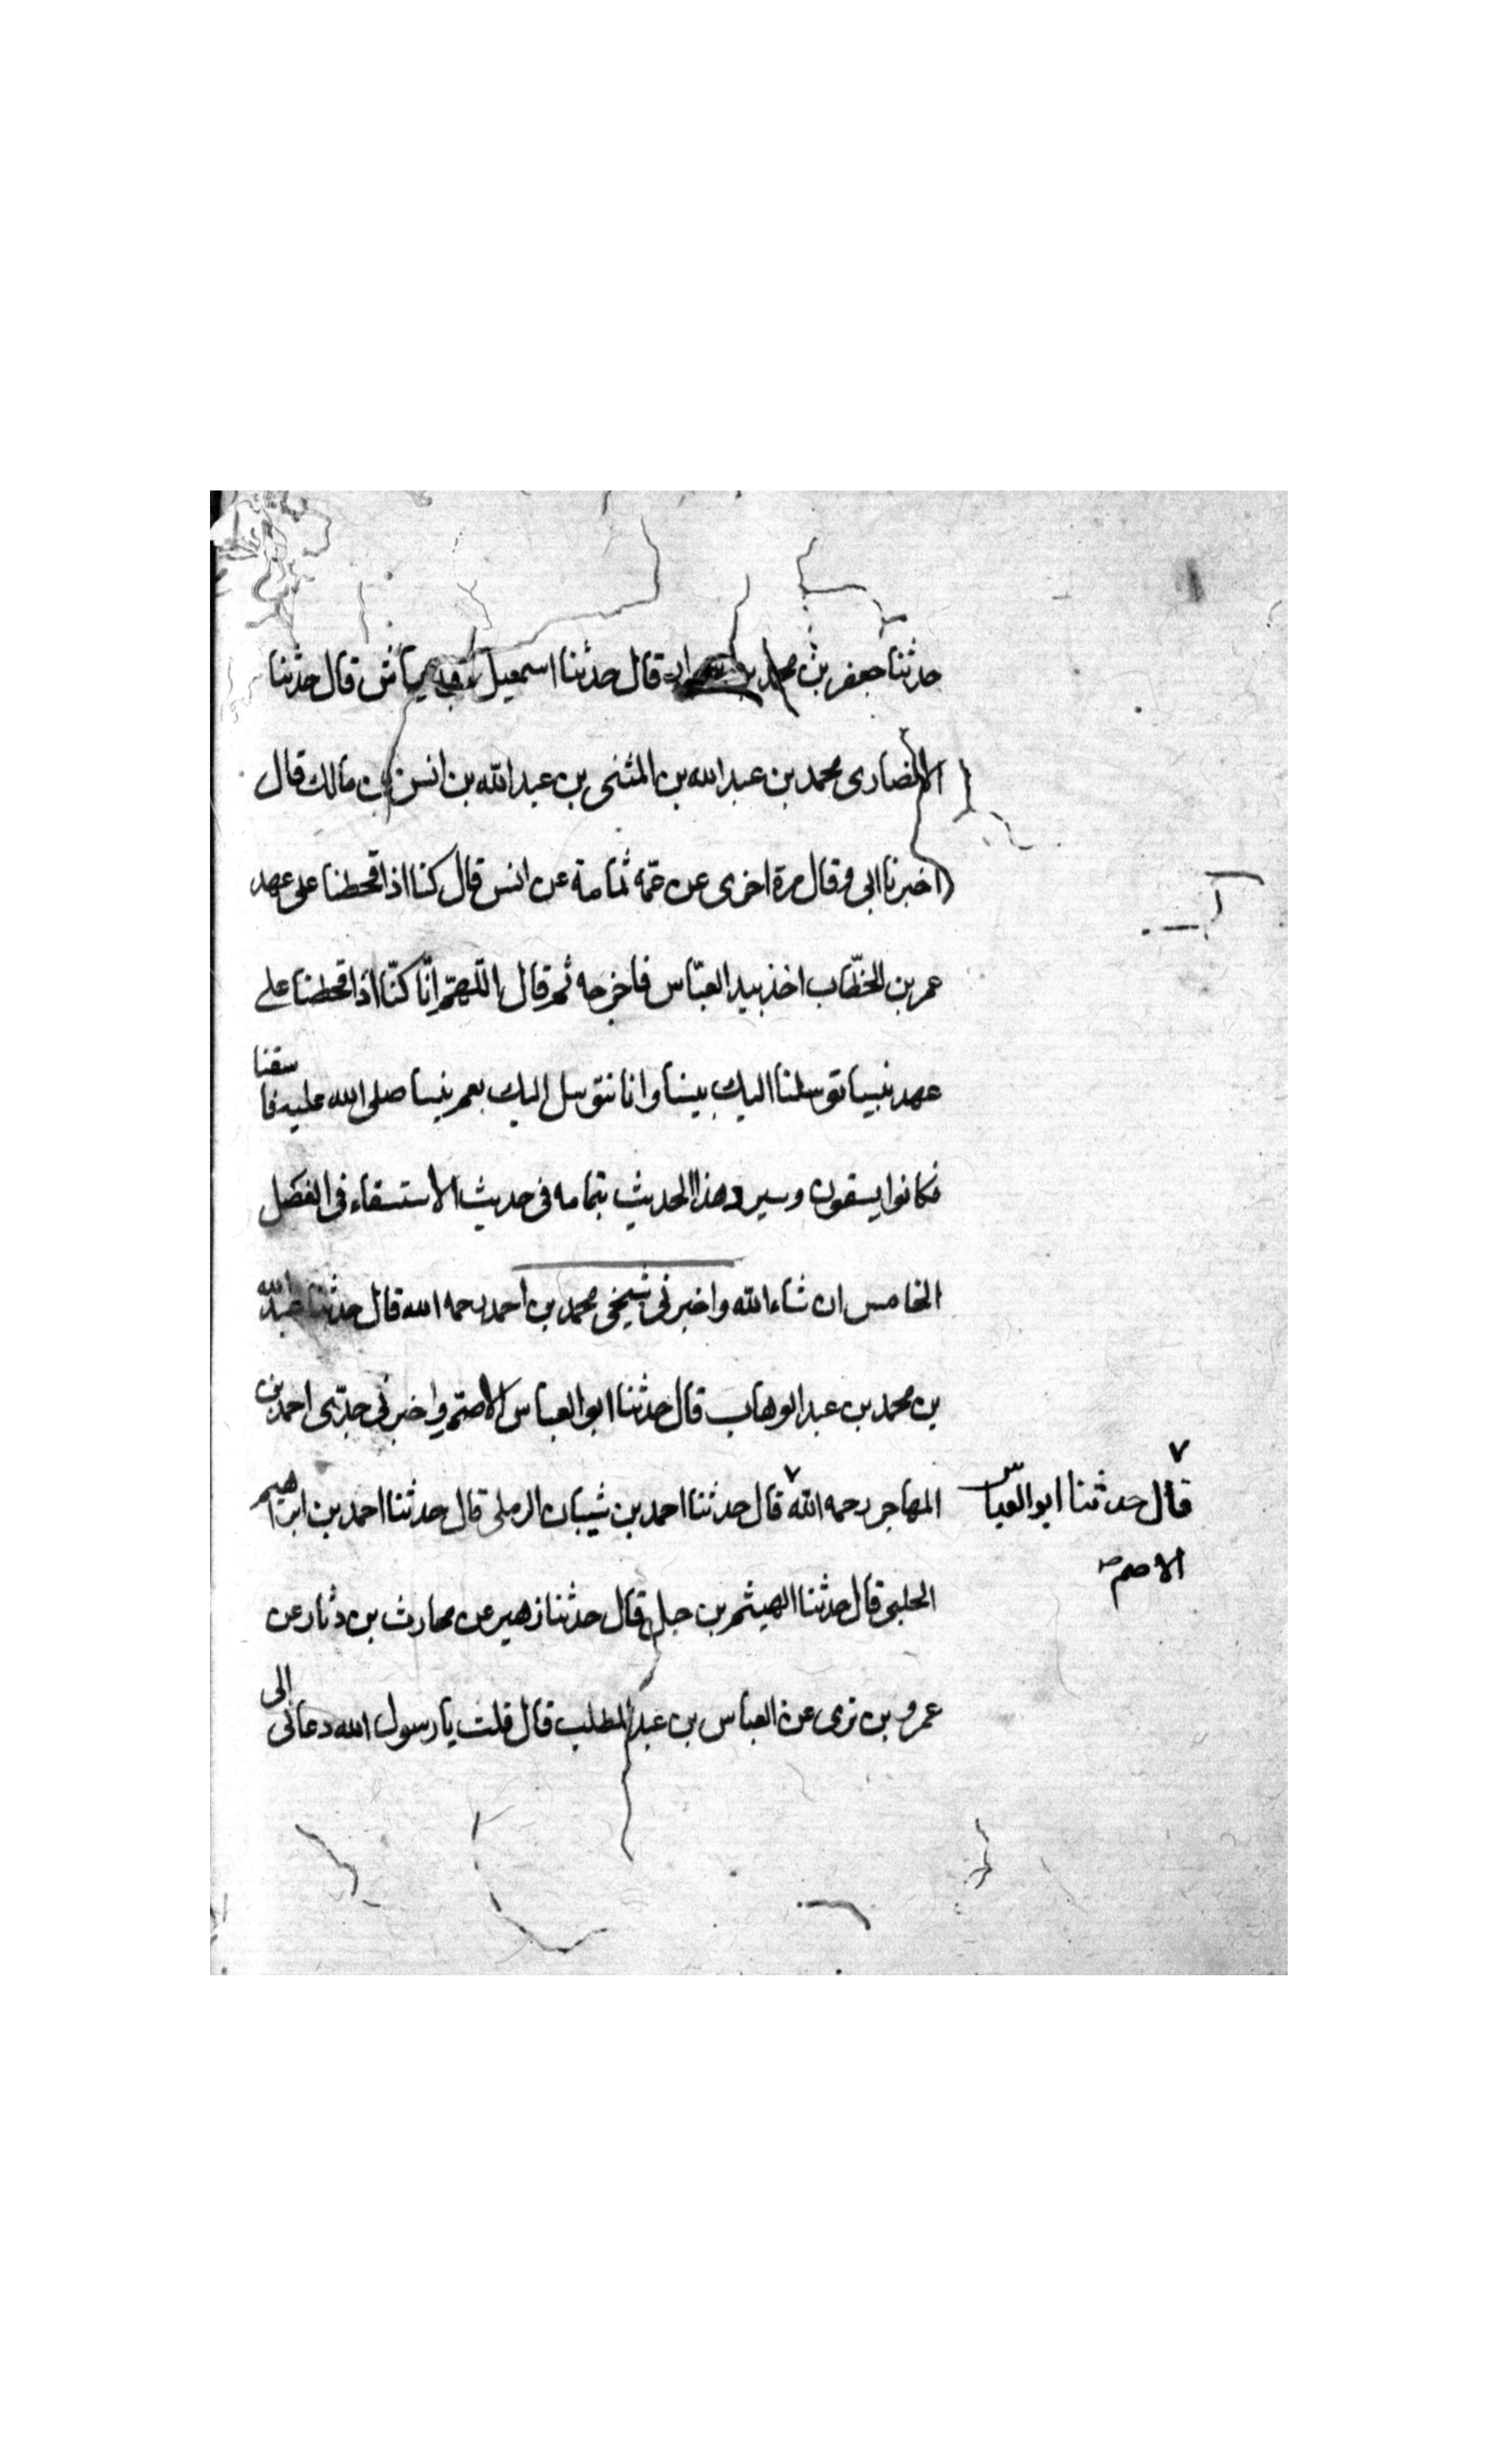 حدثنا جعفر بن محمد بن قال حدثنا اسمعيل قال حدثنا
الانصارى محمد بن عبد الله بن المثنى بن عبد الله بن انس بن مالك قال
اخبرنا ابى وقال مرة اخرى عن عمّه ثمامة عن انس قال كنا اذا قحطنا على عهد
عمر بن الخطّاب اخذ بيد العبّاس فاخرجه ثم قال اللّهمّ انّا كنّا اذا قحطنا على
عهد نبينا توسلنا اليك بنبينا وانا نتوسل اليك بعم نبينا صلى الله عليه فاسقنا
فكانوا يسقون وسيرد هذا الحديث بتمامه فى حديث الاستسقاء فى الفصل
الخامس ان شاء الله واخبرنى شيخى محمد بن احمد رحمه الله قال حدثنا عبد الله
بن محمد بن عبد الوهاب قال حدثنا ابو العباس الاصمّ واخبرنى جدّى احمد بن
المهاجر رحمه الله قال حدثنا احمد بن شيبان الرملى قال حدثنا احمد بن ابراهيم
قال حدثنا ابو العباس
الاصم
الحلبى قال حدثنا الهيثم بن جميل قال حدثنا زهير عن محارث بن دثار عن
عمرو بن ثرى عن العباس بن عبد المطلب قال قلت يا رسول الله دعانى الى